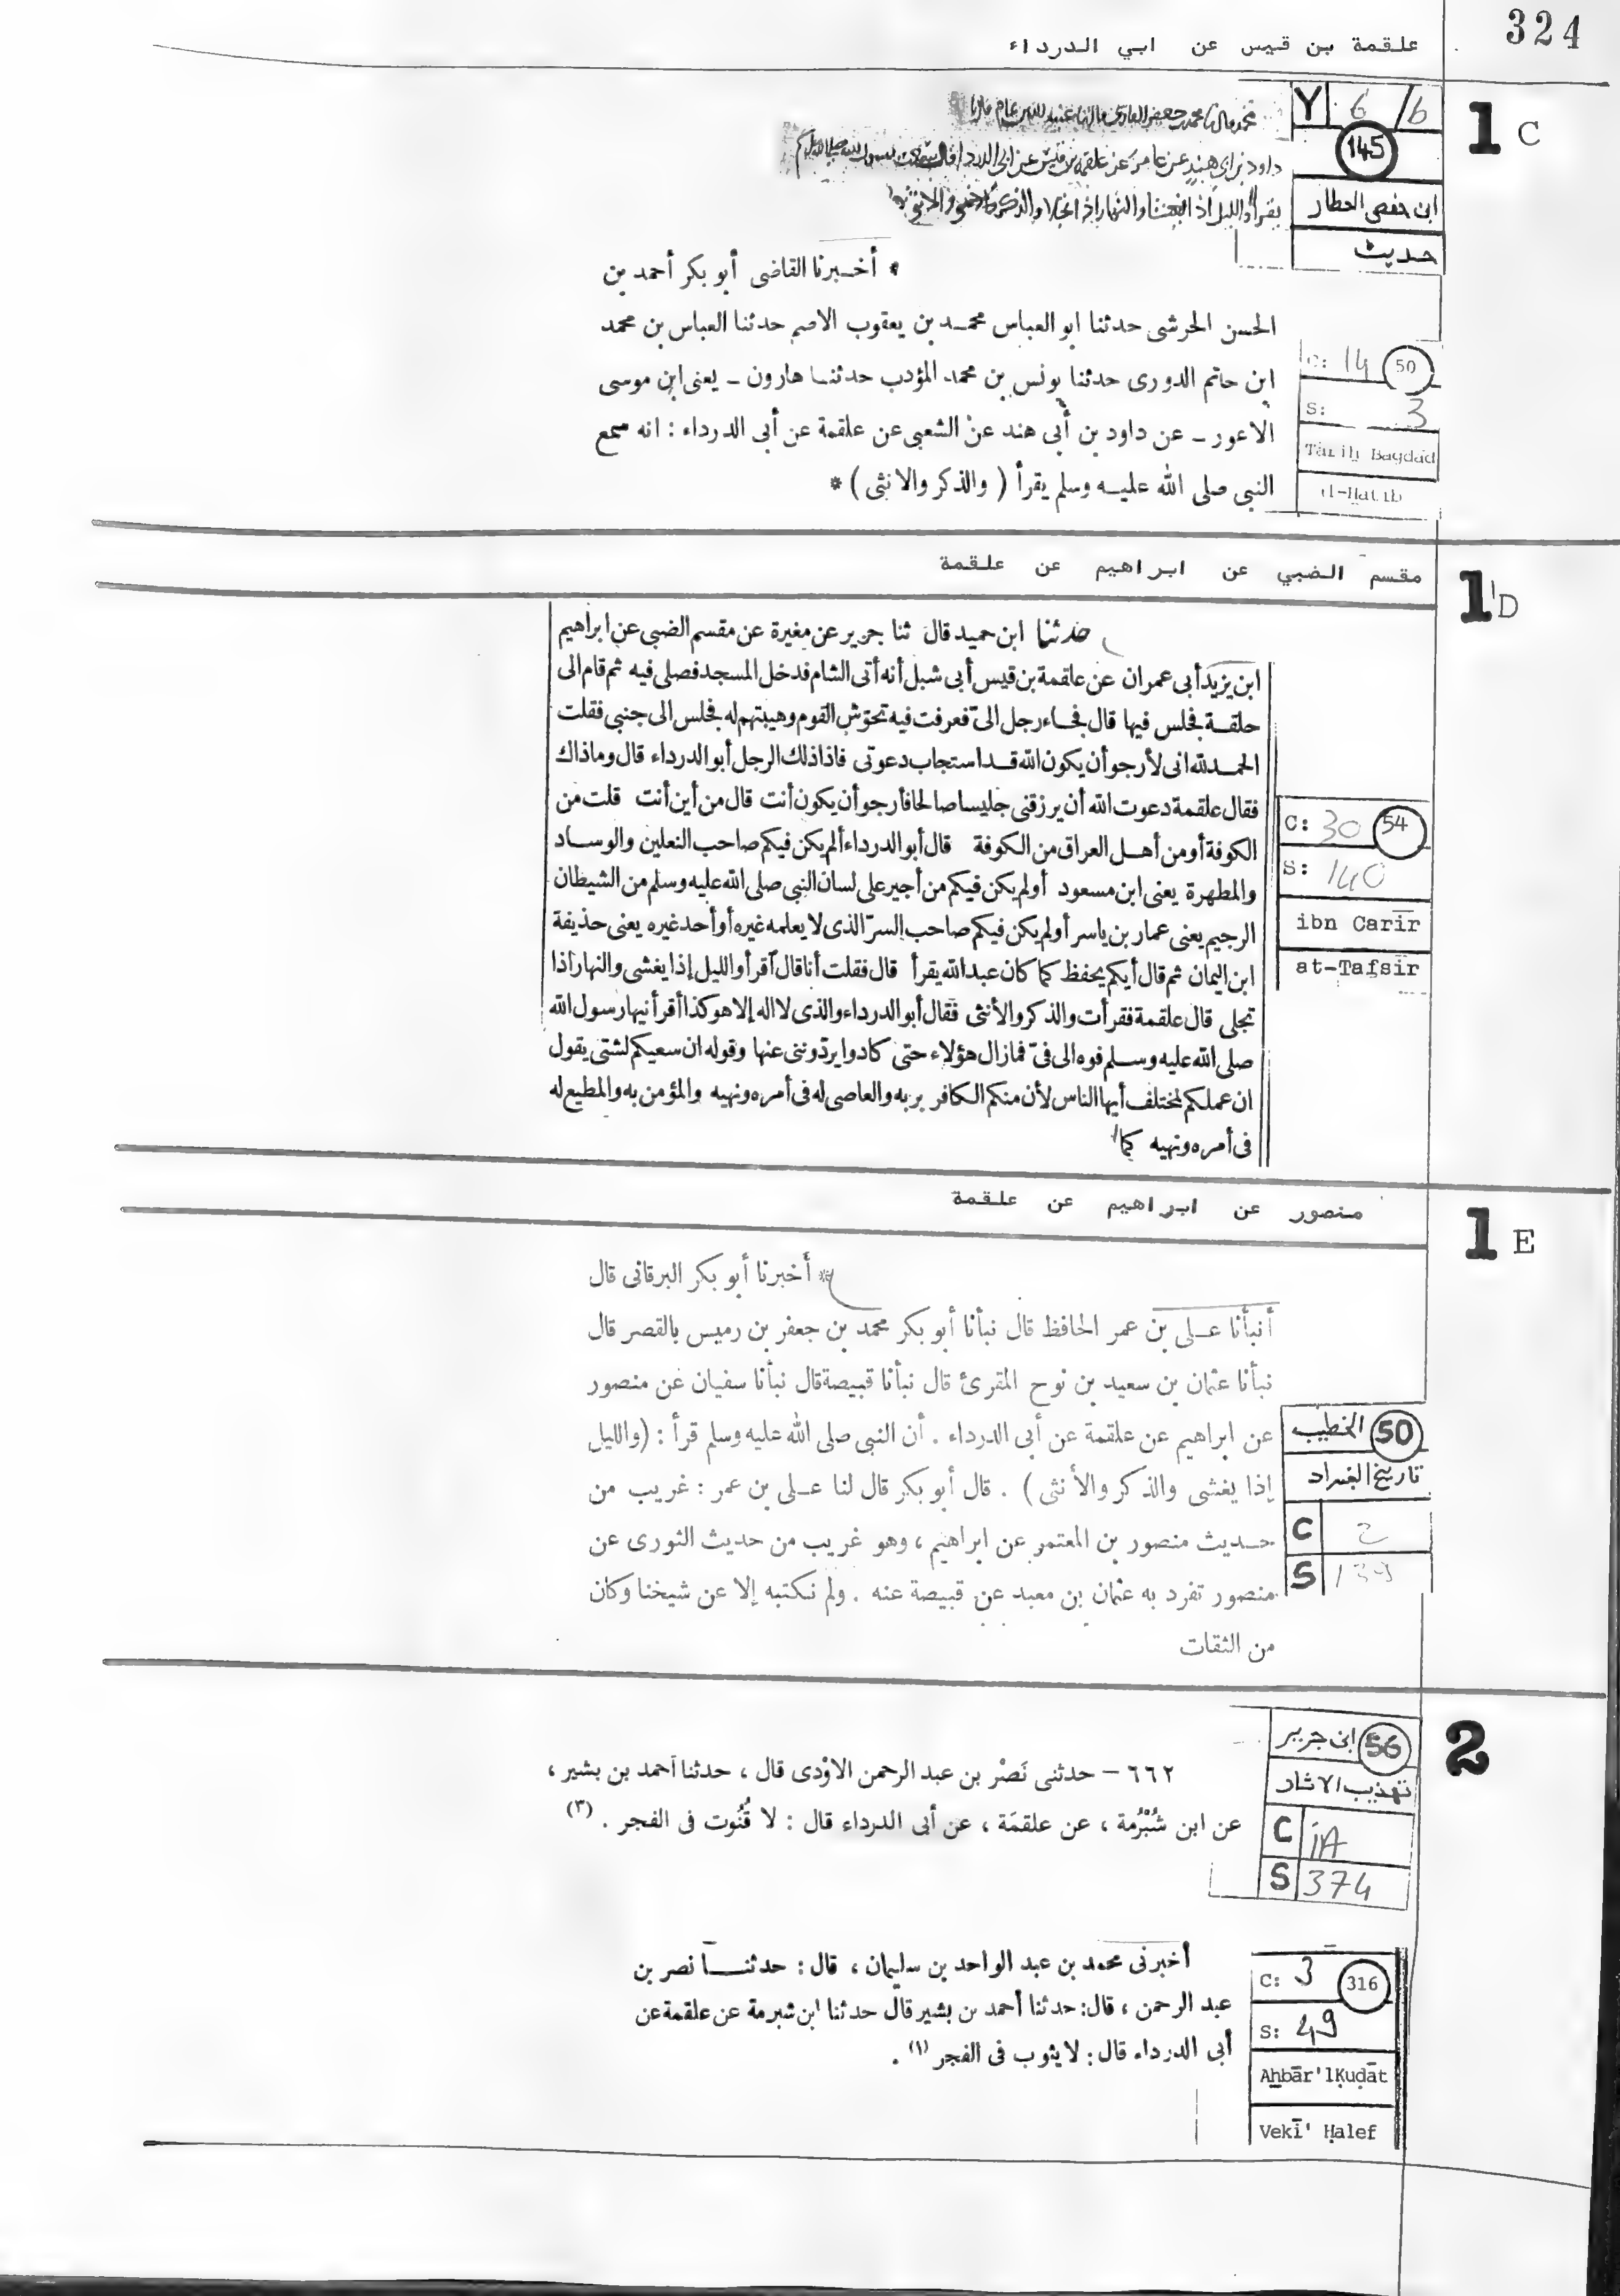 324
علقمة بن قيس عن ابي الدرداء
1 C
Y 6/b
145
ابن حفص العطار
حديث
داود بن ابي هند عن عامر عن علقمة بن قيس عن ابي الدرداء قال سمعت رسول الله صلى الله عليه وسلم
يقرأ والليل اذا يغشا والنهار اذا تجلا والذكر والانثى
* أخبرنا القاضى أبو بكر أحمد بن
الحسن الحرشى حدثنا ابو العباس محمد بن يعقوب الاصم حدثنا العباس بن محمد
ابن حاتم الدورى حدثنا يونس بن محمد المؤدب حدثنا هارون - يعنى ابن موسى
الاعور - عن داود بن أبى هند عن الشعبى عن علقمة عن أبى الدرداء : انه سمع
النبى صلى الله عليه وسلم يقرأ ( والذكر والانثى ) *
C: 14 50
S: 3
Tārih Bagdād
el-Hatib
مقسم الضبي عن ابراهيم عن علقمة
1 D
حدثنا ابن حميد قال ثنا جرير عن مغيرة عن مقسم الضبى عن ابراهيم
ابن يزيد أبى عمران عن علقمة بن قيس أبى شبل أنه أتى الشام فدخل المسجد فصلى فيه ثم قام الى
حلقة فجلس فيها قال فجاء رجل الىّ فعرفت فيه تحوّش القوم وهيبتهم له فجلس الى جنبى فقلت
الحمد لله انى لأرجو أن يكون الله قد استجاب دعوتى فاذا ذلك الرجل أبو الدرداء قال وماذاك
فقال علقمة دعوت الله أن يرزقنى جليسا صالحا فأرجو أن يكون أنت قال من أين أنت قلت من
الكوفة أو من أهل العراق من الكوفة قال أبو الدرداء ألم يكن فيكم صاحب النعلين والوساد
والمطهرة يعنى ابن مسعود أو لم يكن فيكم من أجير على لسان النبى صلى الله عليه وسلم من الشيطان
الرجيم يعنى عمار بن ياسر أو لم يكن فيكم صاحب السرّ الذى لا يعلمه غيره أو أحد غيره يعنى حذيفة
ابن اليمان ثم قال أيكم يحفظ كما كان عبد الله يقرأ قال فقلت أنا قال آقرأ والليل إذا يغشى والنهار اذا
تجلى قال علقمة فقرأت والذكر والأنثى فقال أبو الدرداء والذى لا اله إلا هو كذا أقرأنيها رسول الله
صلى الله عليه وسلم فوه الى فىّ فمازال هؤلاء حتى كادوا يردّوننى عنها وقوله ان سعيكم لشتى يقول
ان عملكم لمختلف أيها الناس لأن منكم الكافر بربه والعاصى له فى أمره ونهيه والمؤمن به والمطيع له
فى أمره ونهيه كما
C: 30 54
S: 140
ibn Carīr
at-Tafsīr
منصور عن ابراهيم عن علقمة
1 E
* أخبرنا أبو بكر البرقانى قال
أنبأنا على بن عمر الحافظ قال نبأنا أبو بكر محمد بن جعفر بن رميس بالقصر قال
نبأنا عثمان بن سعيد بن نوح المقرئ قال نبأنا قبيصة قال نبأنا سفيان عن منصور
عن ابراهيم عن علقمة عن أبى الدرداء . أن النبى صلى الله عليه وسلم قرأ : (والليل
إذا يغشى والذكر والأنثى) . قال أبو بكر قال لنا على بن عمر : غريب من
حديث منصور بن المعتمر عن ابراهيم ، وهو غريب من حديث الثورى عن
منصور تفرد به عثمان بن معبد عن قبيصة عنه . ولم نكتبه إلا عن شيخنا وكان
من الثقات
الخطيب 50
تاريخ البغداد
C 2
S 139
2
ابن جرير 56
تهذيب الاثار
C İA
S 374
٦٦٢ - حدثنى نَصْر بن عبد الرحمن الاوْدى قال ، حدثنا أحمد بن بشير ،
عن ابن شُبْرُمة ، عن علقمَة ، عن أبى الدرداء قال : لا قُنُوت فى الفجر . (٣)
أخبرنى محمد بن عبد الواحد بن سليمان ، قال : حدثنا نصر بن
عبد الرحمن ، قال: حدثنا أحمد بن بشير قال حدثنا ابن شبرمة عن علقمة عن
أبى الدرداء قال : لا يثوب فى الفجر (١) .
C: 3 316
S: 49
Aẖbār'lḲuḍāt
Vekī' Ḥalef